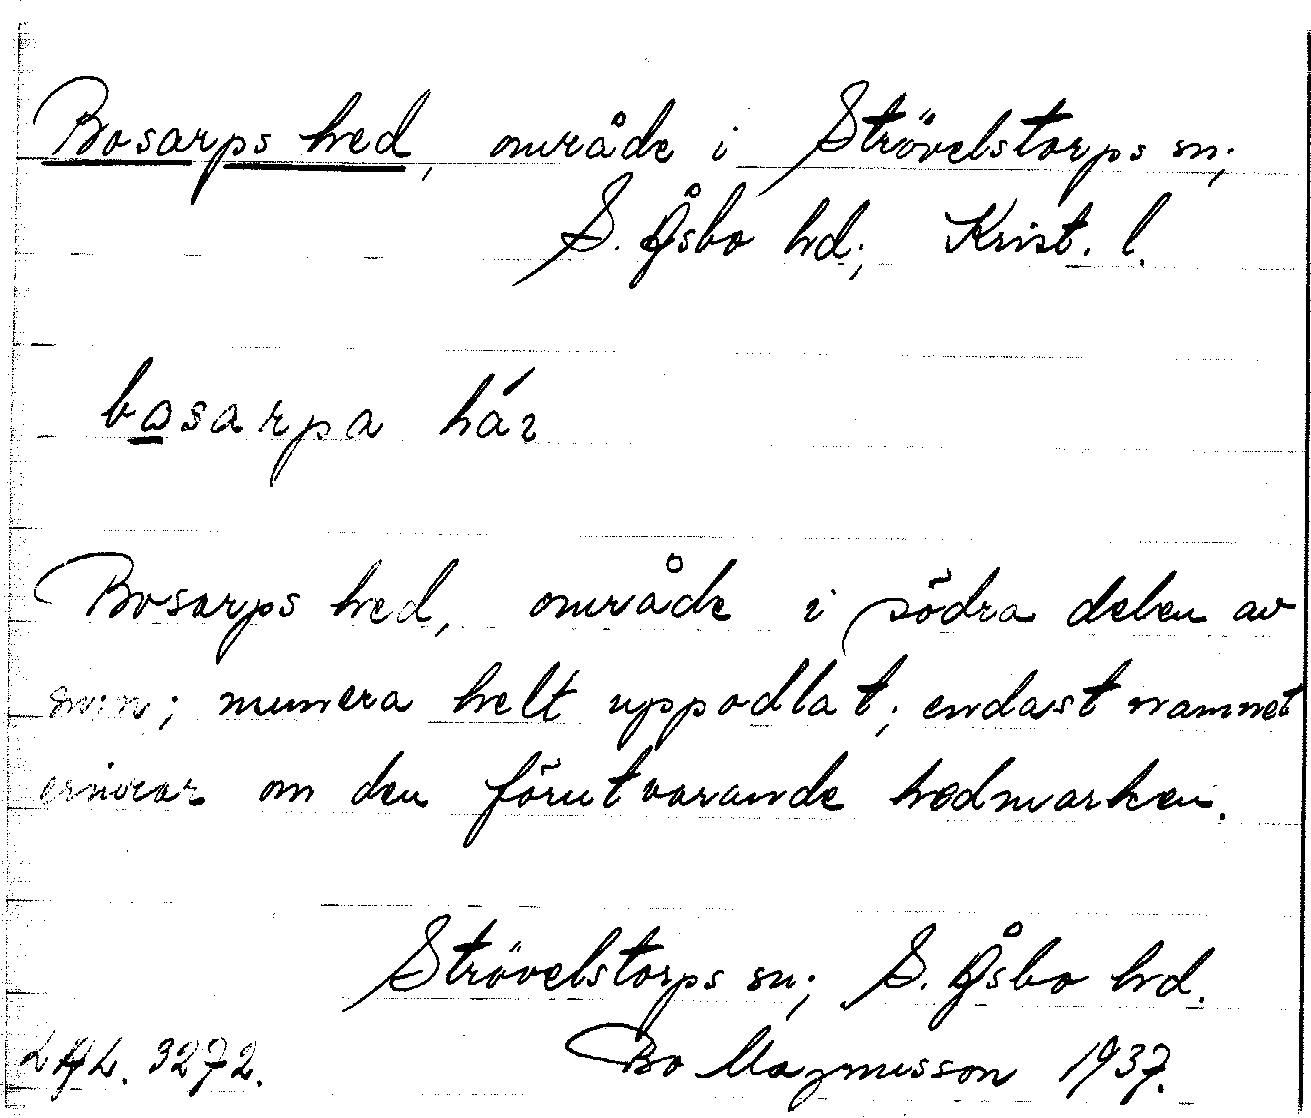 Bosarps hed, område i Strövelstorps sn;
S. Åsbo hd; Krist. l.
bosarpa här
Bosarps hed, område i södra delen av
snen; numera helt uppodlat; endast namnet
erinrar om den förutvarande hedmarken.
Strövelstorps sn; S. Åsbo hd.
LAL. 3272. Bo Magnusson 1937.